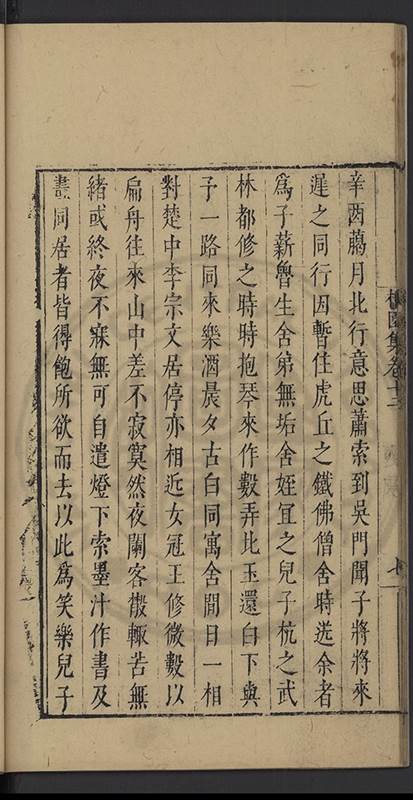 檀園集卷十二
七
辛酉臈月北行意思蕭索到吳門聞子將將來
遲之同行因暫住虎丘之鐵佛僧舍時送余者
爲子薪魯生舍弟無垢舍姪宜之兒子杭之武
林都修之時時抱琴來作數弄比玉還白下與
予一路同來樂酒晨夕古白同寓舍閒日一相
對楚中李宗文居停亦相近女冠王修微數以
扁舟往來山中差不寂寞然夜闌客散輒苦無
緒或終夜不寐無可自遣燈下索墨汁作書及
畫同居者皆得飽所欲而去以此爲笑樂兒子